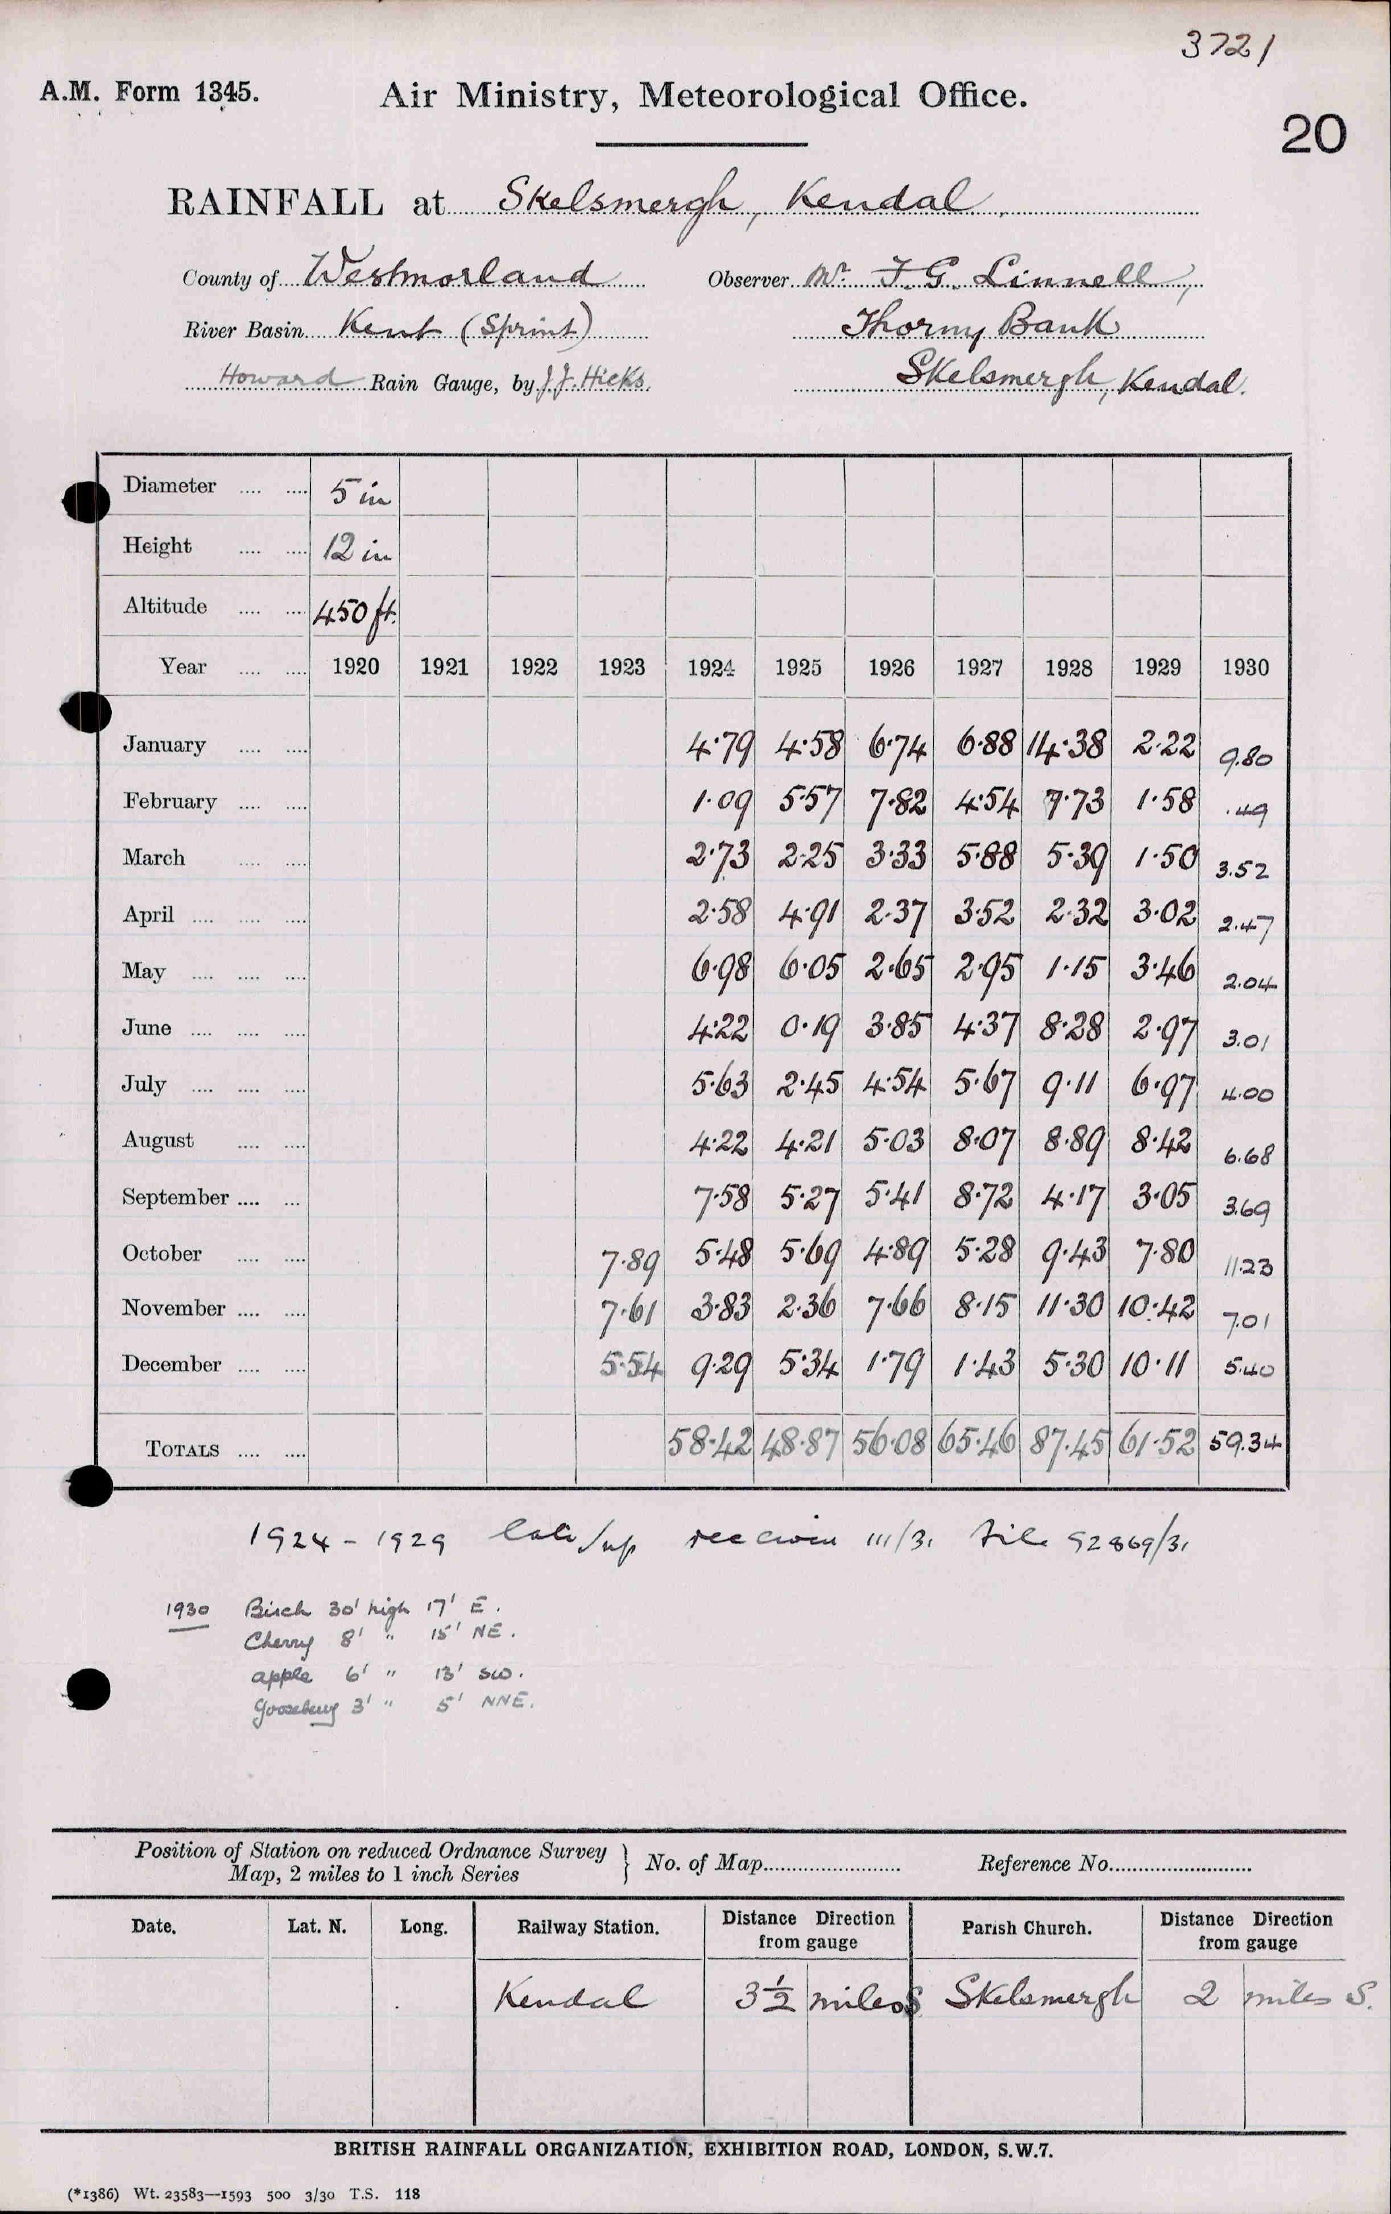 3721
A.M. Form 1345.
Air Ministry, Meteorological Office.
20
RAINFALL at Skelsmergh, Kendal,
County of Westmorland Observer Mr. F. G. Linnell,
River Basin Kent (Sprint) Thorny Bank
Howard Rain Gauge, by J. J. Hicks. Skelsmergh, Kendal.
Diameter .... .... 5 in
Height .... .... 12 in
Altitude .... .... 450 ft.
Year .... .... 1920 1921 1922 1923 1924 1925 1926 1927 1928 1929 1930
January .... .... 4·79 4·58 6·74 6·88 14·38 2·22 9.80
February .... .... 1·09 5·57 7·82 4·54 7·73 1·58 .49
March .... .... 2·73 2·25 3·33 5·88 5·39 1·50 3.52
April .... .... .... 2·58 4·91 2·37 3·52 2·32 3·02 2.47
May .... .... .... 6·98 6·05 2·65 2·95 1·15 3·46 2.04
June .... .... .... 4·22 0·19 3·85 4·37 8·28 2·97 3.01
July .... .... .... 5·63 2·45 4·54 5·67 9·11 6·97 4.00
August .... .... 4·22 4·21 5·03 8·07 8·89 8·42 6.68
September .... ... 7·58 5·27 5·41 8·72 4·17 3·05 3.69
October .... .... 7·89 5·48 5·69 4·89 5·28 9·43 7·80 11.23
November .... .... 7·61 3·83 2·36 7·66 8·15 11·30 10·42 7.01
December .... .... 5·54 9·29 5·34 1·79 1·43 5·30 10·11 5.40
TOTALS .... .... 58·42 48·87 56·08 65·46 87·45 61·52 59.34
1924 - 1929 111/31 File 92869/31
1930 Birch 30' high 17' E.
Cherry 8' " 15' NE.
apple 6' " 13' SW.
Gooseberry 3' " 5' NNE.
Position of Station on reduced Ordnance Survey
Map, 2 miles to 1 inch Series } No. of Map Reference No.
Date. Lat. N. Long. Railway Station. Distance Direction from gauge Parish Church. Distance Direction from gauge
Kendal 3½ miles S Skelsmergh 2 miles S.
BRITISH RAINFALL ORGANIZATION, EXHIBITION ROAD, LONDON, S.W.7.
(*1386) Wt. 23583—1593 500 3/30 T.S. 118